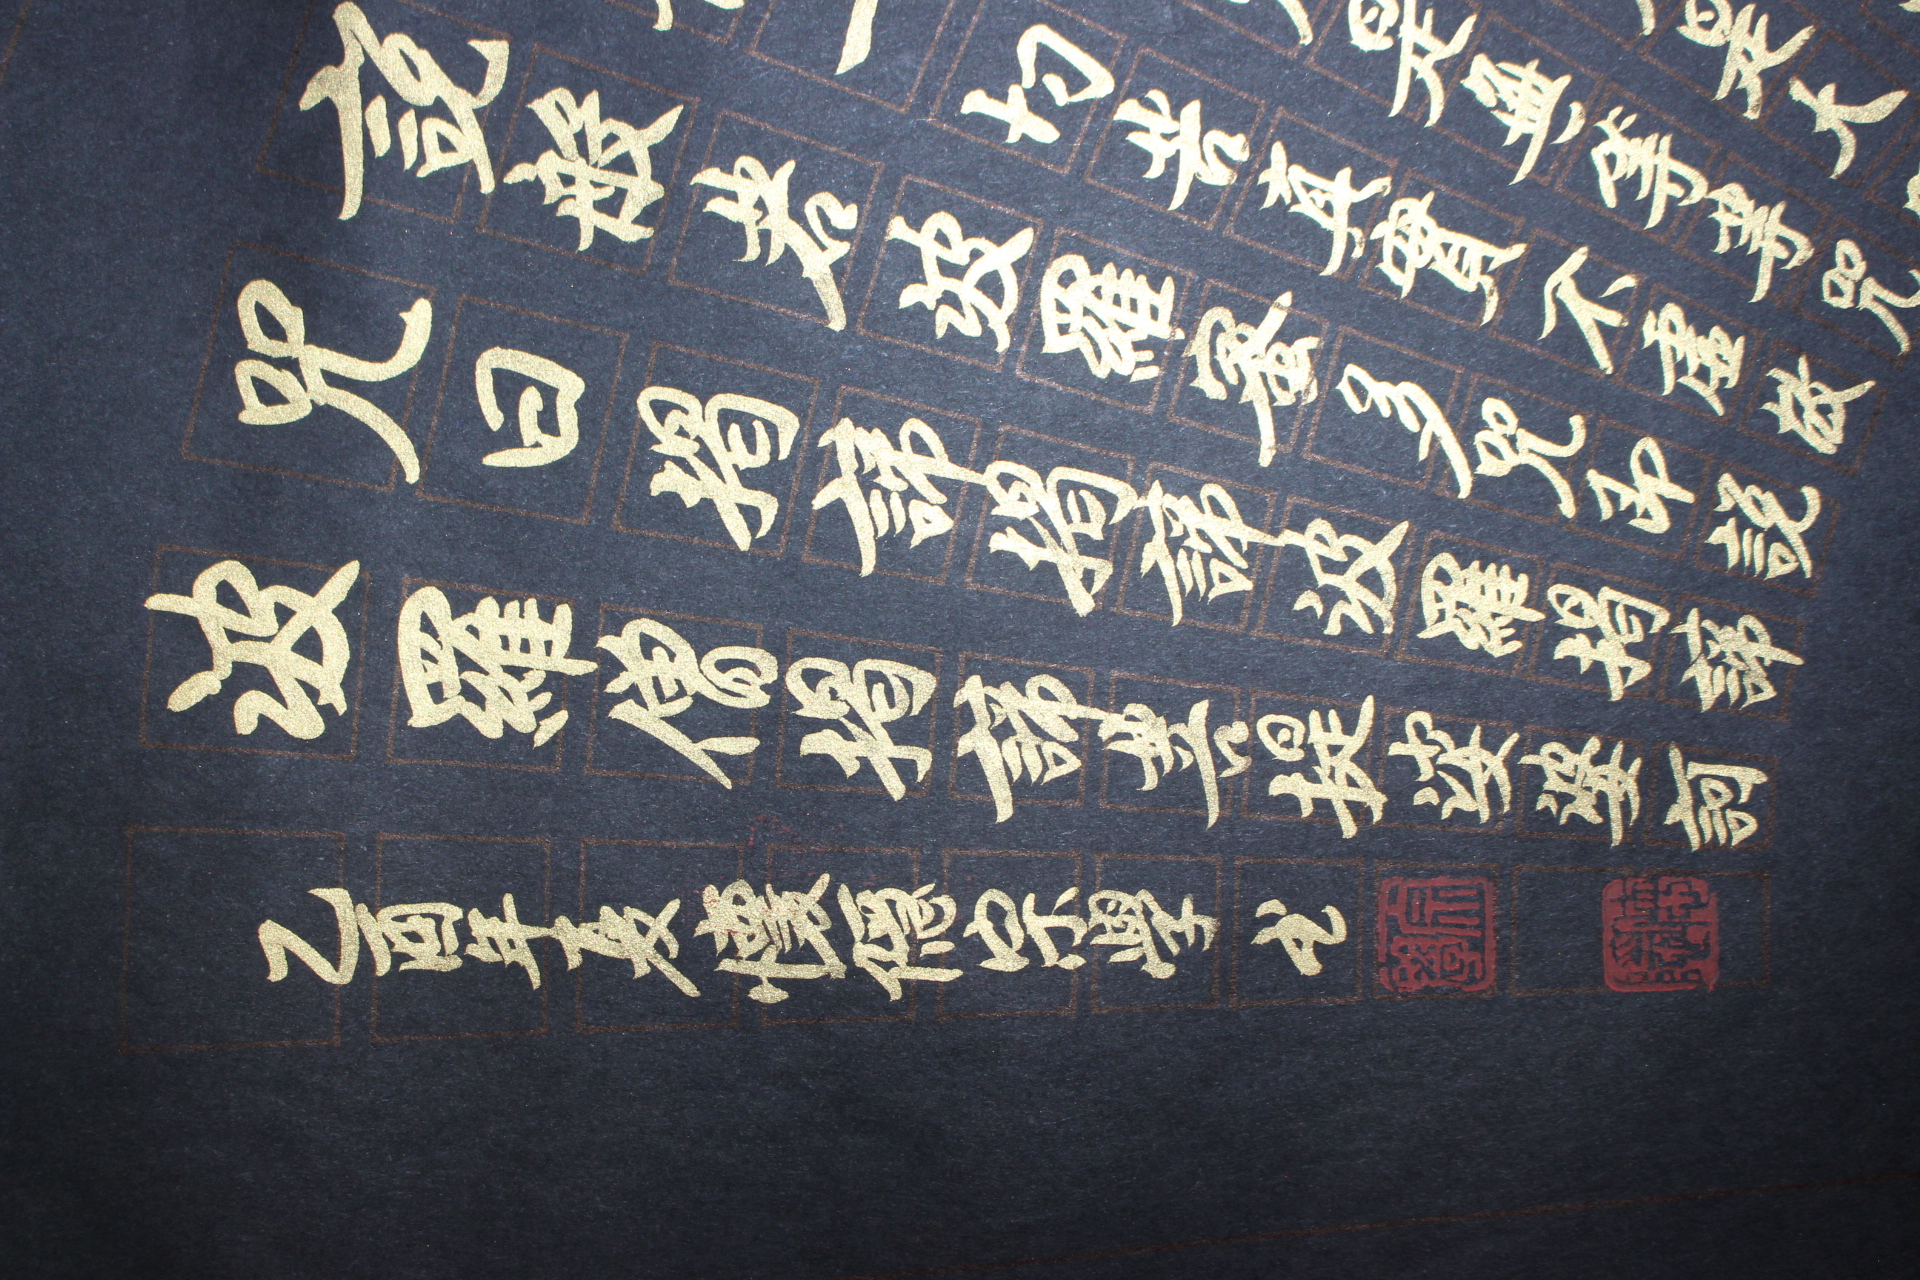 是大
是無等等咒
一切苦真實不虛故
説般若波羅蜜多咒即説
咒曰揭諦揭諦波羅揭諦
波羅僧揭諦菩提娑婆訶
乙酉年夏懷隱宗學书
宗學